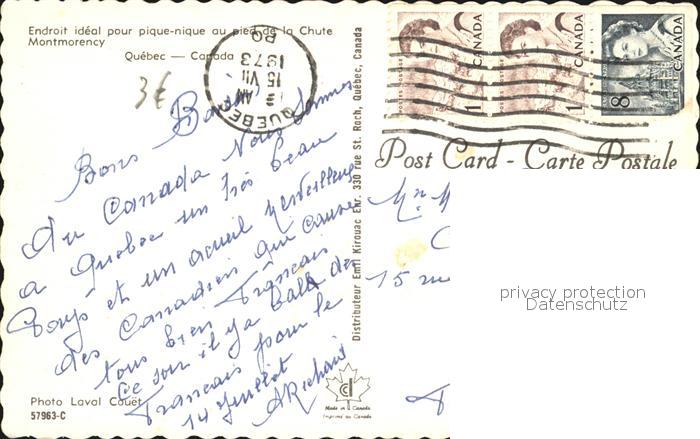 Endroit idéal pour pique-nique au pied de la Chute
Montmorency
Québec — Canada
3€
QUEBEC
PQ
AM
15 VII
1973
Bons Baisés
du Canada Nous sommes
a Quebec un très beau
Pays et un acueil merveilleux
des Canadiens qui cause
tous bien Français
Ce soir il y a balle des
Francais pour le
14 Juillet
A Richard
Photo Laval Couët
57963-C
Distributeur Emil Kirouac Enr. 330 rue St. Roch, Québec, Canada
Made in Canada
Imprimé au Canada
POSTES POSTAGE
1
CANADA
POSTES POSTAGE
1
CANADA
8
CANADA
Post Card - Carte Postale
15
privacy protection
Datenschutz